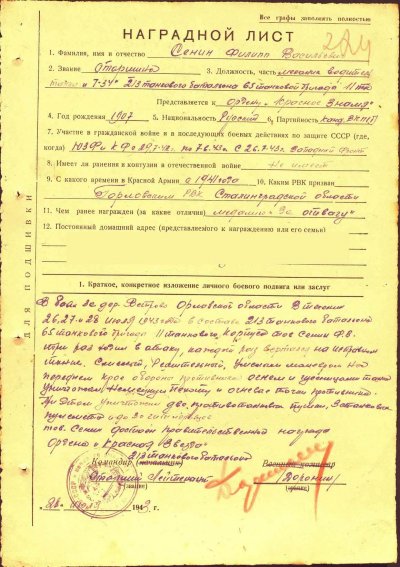 Все графы заполнять полностью
НАГРАДНОЙ ЛИСТ
1. Фамилия, имя и отчество Сенин Филипп Васильевич
2. Звание старшина 3. Должность, часть механик водитель
танка "Т-34" 213 танкового батальона 65 танковой бригады 11 тк
Представляется к ордену "Красное Знамя"
4. Год рождения 1907 5. Национальность Русский 6. Партийность Канд. ВКП(б)
7. Участие в гражданской войне и в последующих боевых действиях по защите СССР (где,
когда) С 26.7.43г. Западный фронт
8. Имеет ли ранения и контузии в отечественной войне Не имеет
9. С какого времени в Красной Армии с 1941 года 10. Каким РВК призван
РВК Сталинградской области
11. Чем ранее награжден (за какие отличия) медалью "За отвагу"
12. Постоянный домашний адрес (представляемого к награждению или его семьи)
ДЛЯ ПОДШИВКИ
1. Краткое, конкретное изложение личного боевого подвига или заслуг
В боях за дер. Орловской области в течении
26, 27 и 28 июля 1943 года в составе 213 танкового батальона
65 танковой бригады 11 танкового корпуса тов. Сенин Ф.В.
три раза ходил в атаку, каждый раз на исправном
танке. Смелый, решительный, умелым маневром на
переднем крае обороны противника огнем и гусеницами танка
уничтожал пехоту и огневые точки противника.
При этом уничтожено два противотанковых пушки,
пулемета и до 20
тов. Сенин достоин правительственной награды
ордена "Красная Звезда"
213 танкового батальона
Командир (начальник) Военный комиссар
Старший лейтенант
(звание)
28 июля 1943 г.